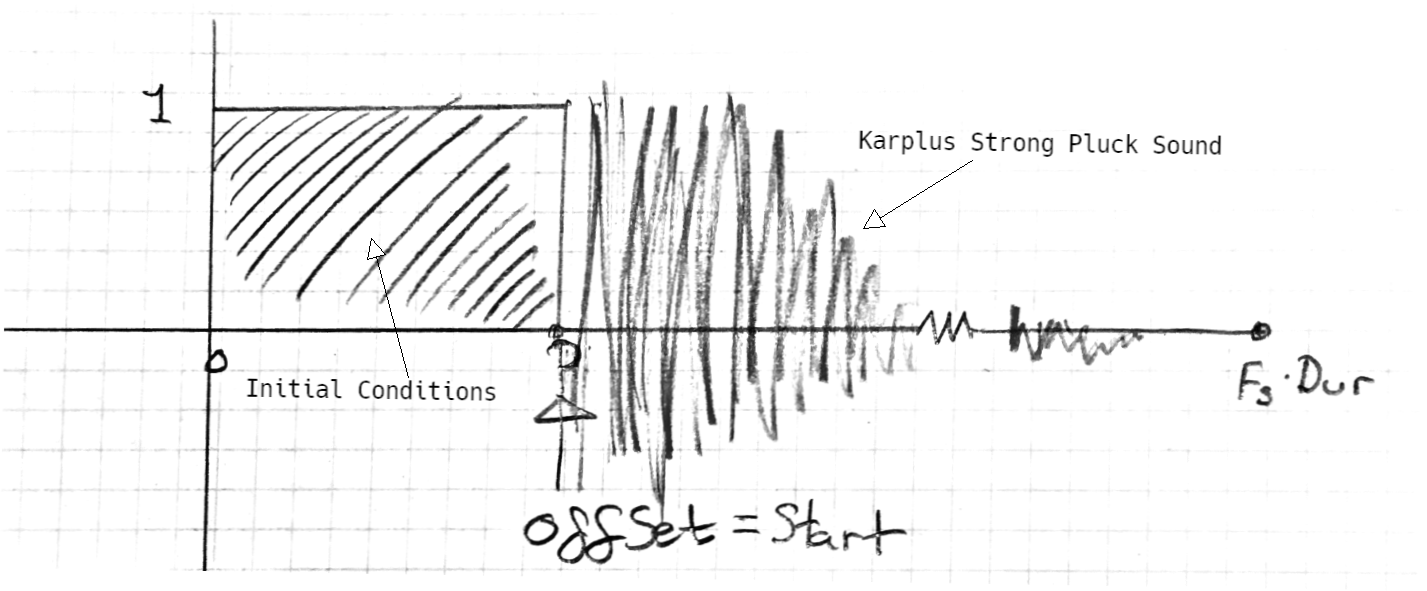 1
Karplus Strong Pluck Sound
0
D
Initial Conditions
Fs·Dur
offSet = Start